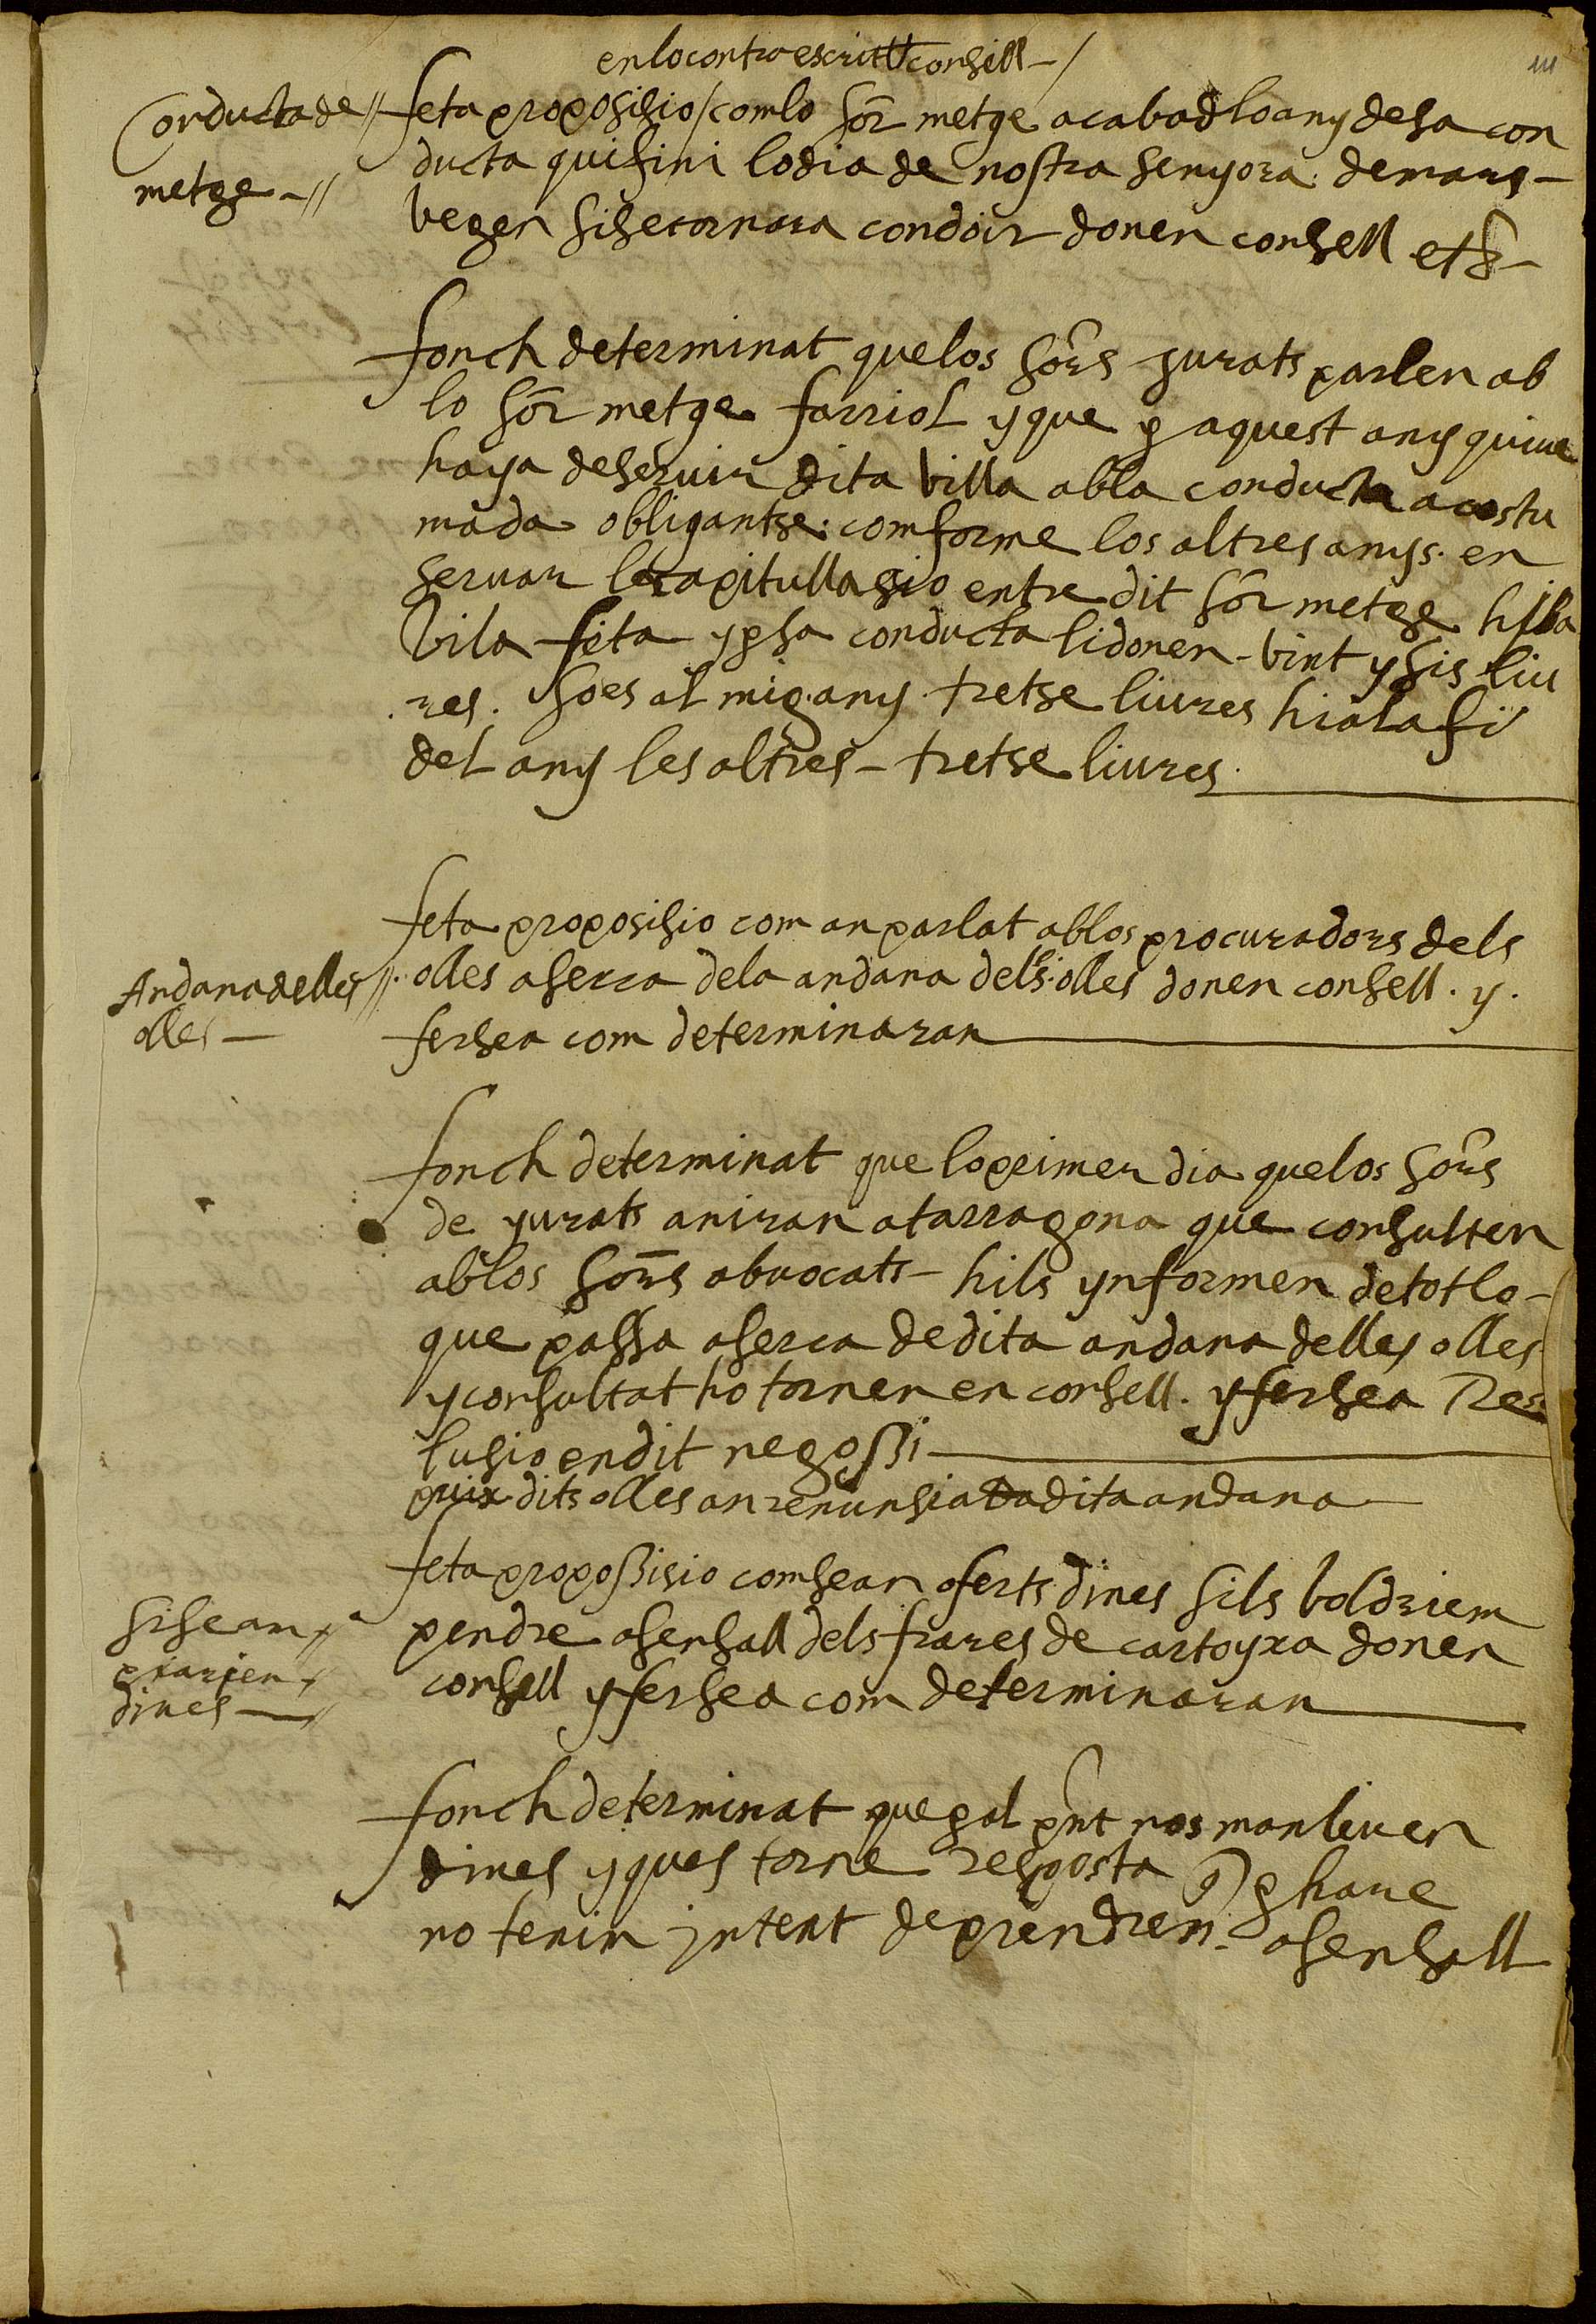 en lo contra escrit consell -/
Conducta de //
metge - //
feta proposisio / com lo sor metge acabad lo any de sa con
ducta qui fini lo dia de nostra senyora de mars -
vegen si se tornara condoir donen consell etc -
fonch determinat que los sors jurats parlen ab
lo sor metge farriol y que p aquest any qui ve
haya de servir dita villa ab la conducta acostu
mada obligantse comforme los altres anys en
servar la capitullasio entre dit sor metge hi la
vila feta y p sa conducta li donen - vint y sis lliu
res. so es al mig any tretse liures hi a la fi
del any les altres - tretse liures.
Andana de lles //
olles -
feta proposisio com an parlat ab los procuradors dels
olles aserca de la andana dels olles donen consell . y .
fer sea com determinaran
fonch determinat que lo primer dia que los sors
de yurats aniran a tarragona que consulten
ab los sors abvocats - hils ynformen de tot lo -
que passa aserca de dita andana de lles olles
y consultat ho tornen en consell . y fer sea Reso
lusio en dit negossi
puix dits olles an renunsiat a dita andana -
si sean
prarien
dines -
feta propossisio com sean oferts dines sils voldriem
pendre a sensall dels frares de cartoyxa donen
consell y fer sea com determinaran
fonch determinat que p al pnt nos manleven
dines y ques torne resposta q p hare
no tenim intent de prendren . a sensall